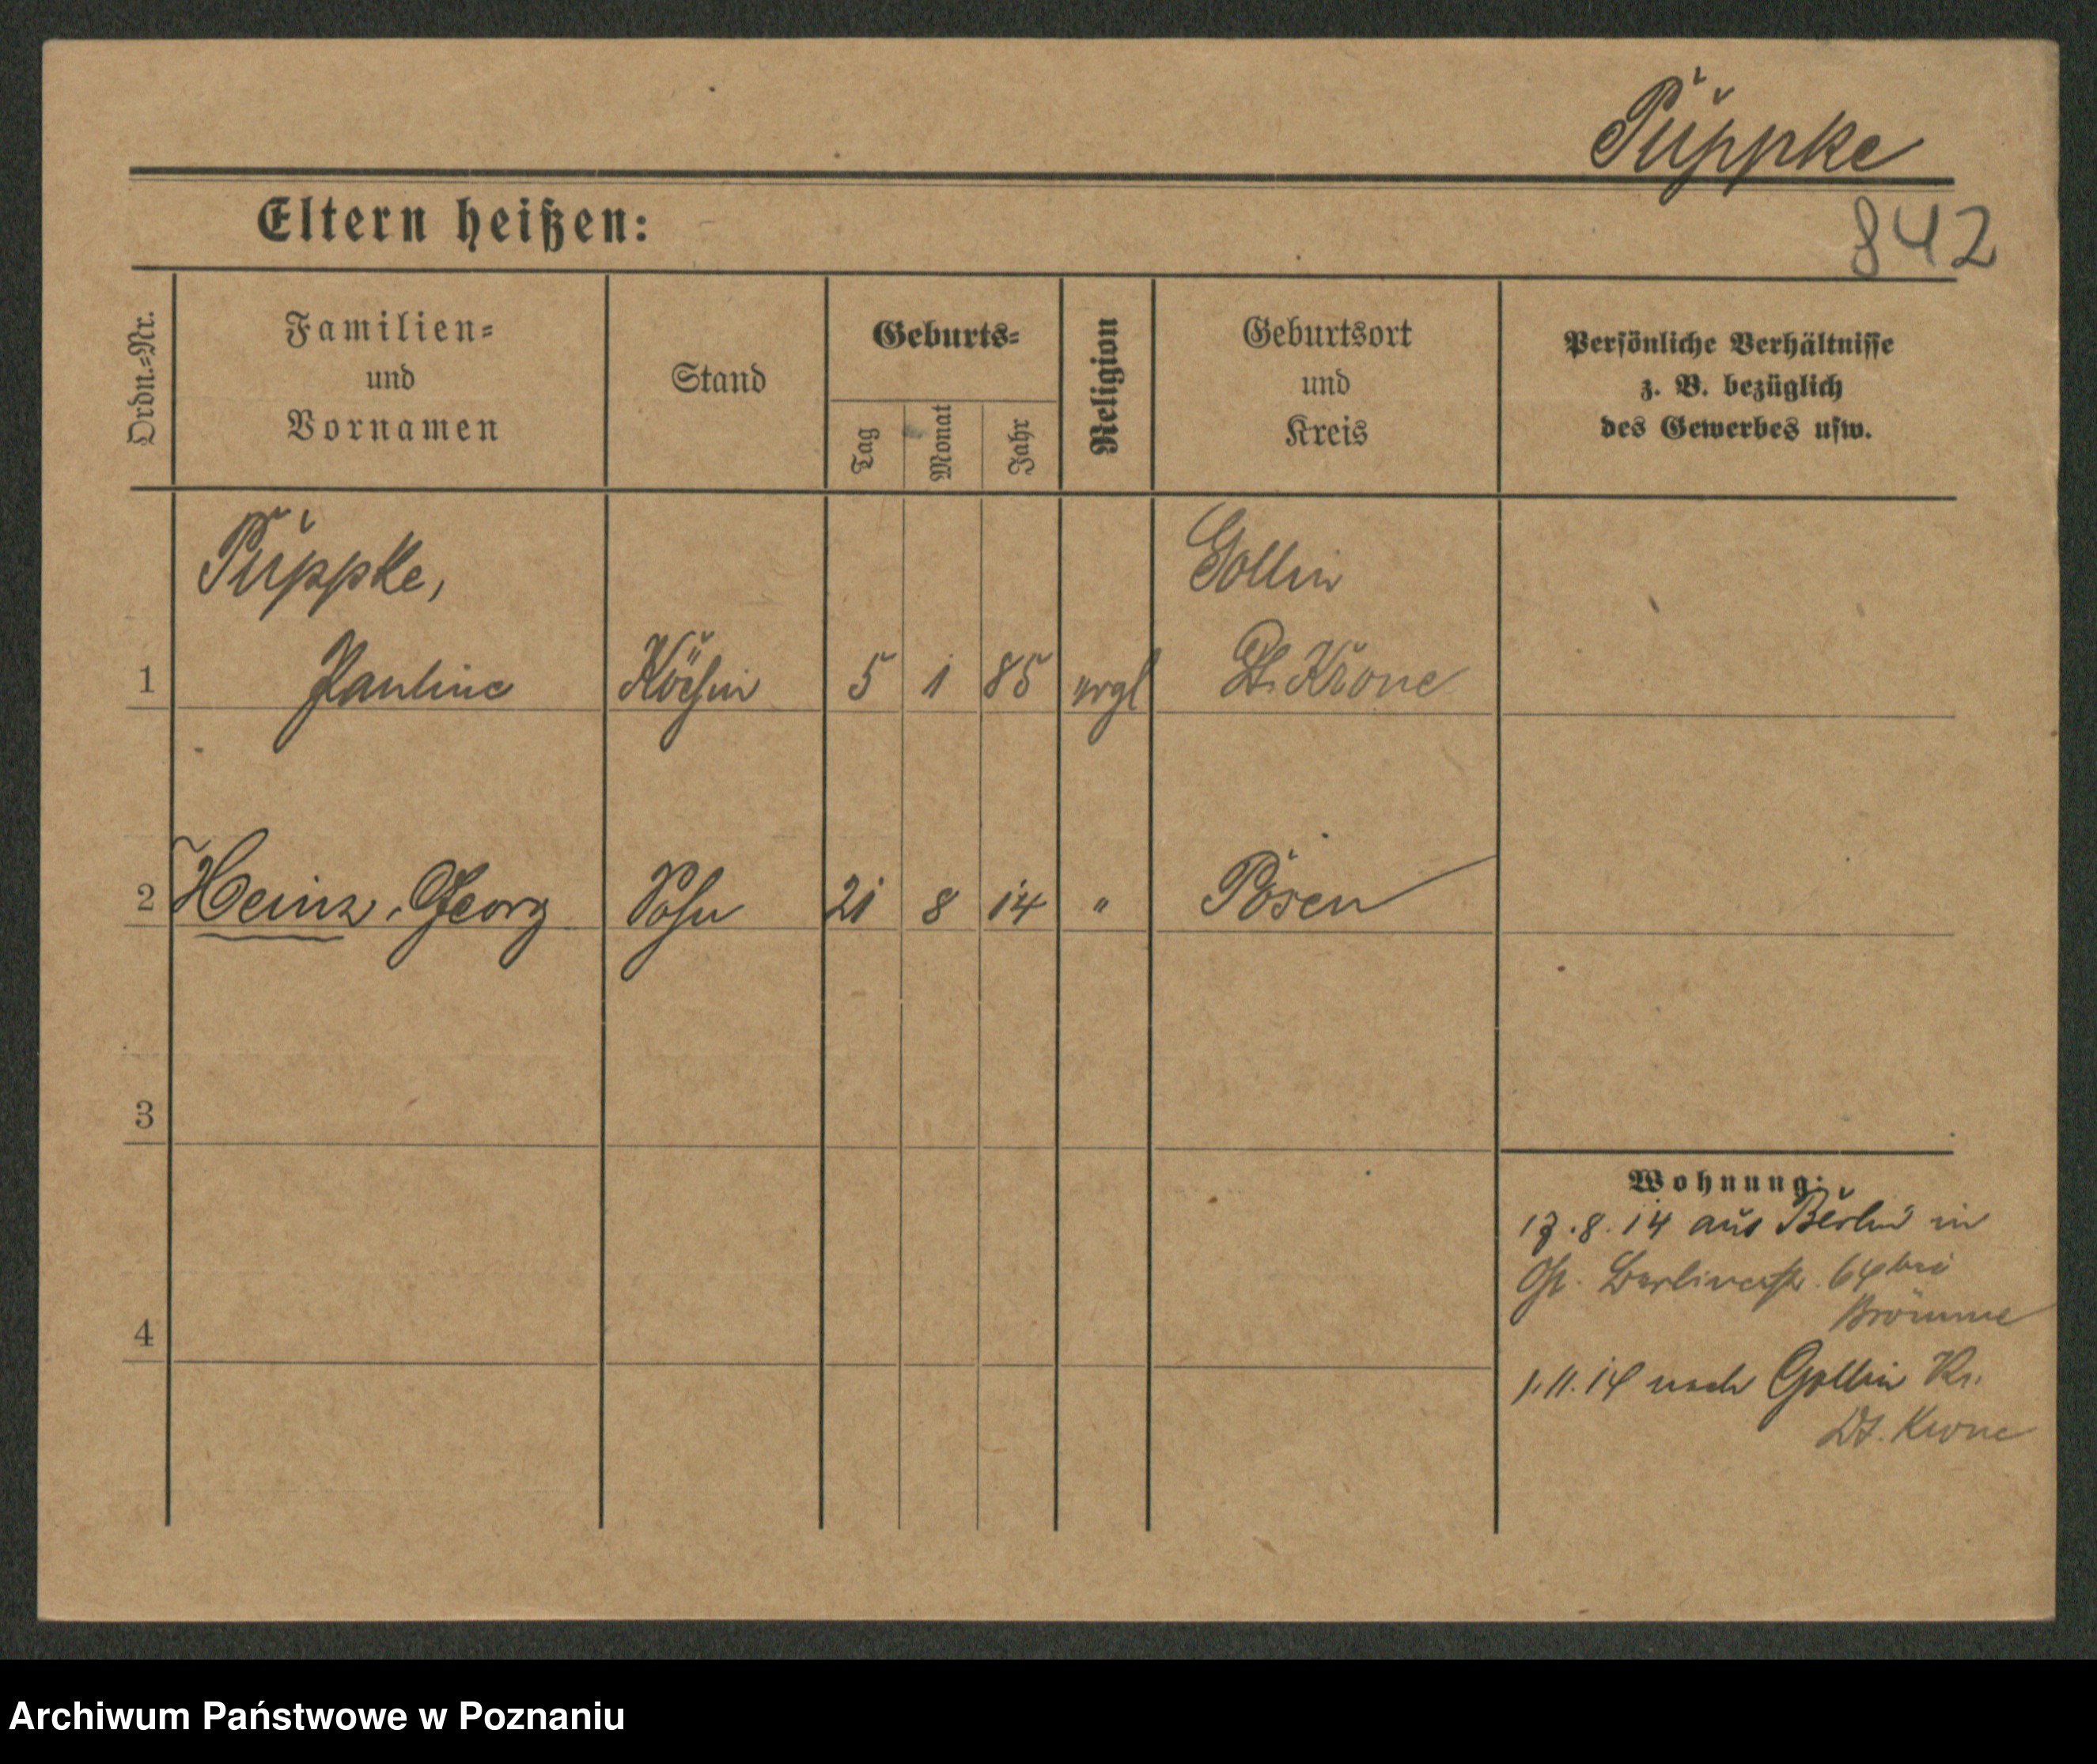 Püppke
Eltern heißen:
842
Ordn.=Nr.
Familien=
und
Vornamen
Stand
Geburts=
Tag
Monat
Jahr
Religion
Geburtsort
und
Kreis
Persönliche Verhältnisse
z. B. bezüglich
des Gewerbes usw.
Püppke,
Gollin
1 Pauline Köchin 5 1 85 evgl Dt. Krone
2 Heinz, Georg Sohn 21 8 14 " Posen
3
Wohnung:
17.8.14 aus Berlin in
Berlinerstr. 64 bei
Brömme
4
1.11.14 nach Gollin Kr.
Dt. Krone
Archiwum Państwowe w Poznaniu